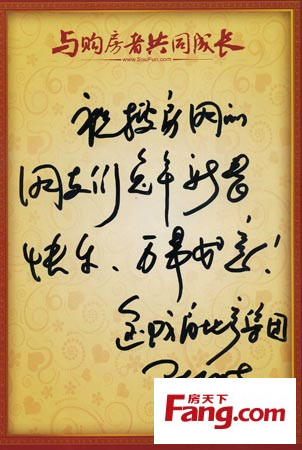 与购房者共同成长
www.SouFun.com
祝搜房网的
网友们兔年新春
快乐、万事如意!
房地产集团
房天下
Fang.com